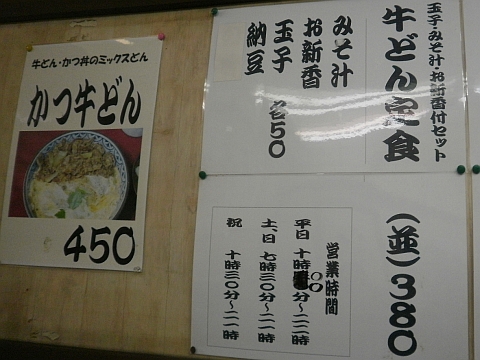 牛どん・かつ丼のミックスどん
かつ牛どん
450
玉子・みそ汁・お新香付セット
牛どん定食
みそ汁
お新香
玉子
納豆
各50
(並)380
営業時間
平日 十時00分~二二時
土、日 七時三〇分~二一時
祝 十時三〇分~二一時